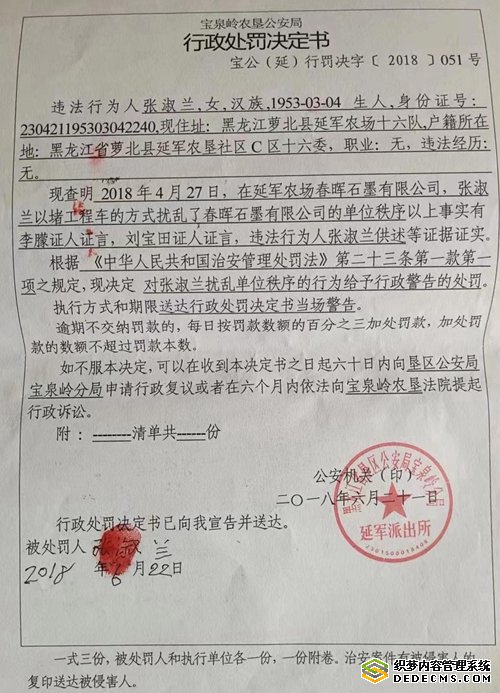 宝泉岭农垦公安局
行政处罚决定书
宝公（延）行罚决字〔 2018 〕051 号
违法行为人张淑兰,女,汉族,1953-03-04 生人,身份证号:
230421195303042240,现住址: 黑龙江萝北县延军农场十六队,户籍所在
地: 黑龙江省萝北县延军农垦社区 C 区十六委, 职业: 无, 违法经历:
无。
现查明 2018 年 4 月 27 日, 在延军农场春晖石墨有限公司, 张淑
兰以堵工程车的方式扰乱了春晖石墨有限公司的单位秩序以上事实有
李朦证人证言, 刘宝田证人证言, 违法行为人张淑兰供述等证据证实。
根据 《中华人民共和国治安管理处罚法》第二十三条第一款第一
项之规定, 现决定 对张淑兰扰乱单位秩序的行为给予行政警告的处罚。
执行方式和期限送达行政处罚决定书当场警告。
逾期不交纳罚款的, 每日按罚款数额的百分之三加处罚款, 加处罚
款的数额不超过罚款本数。
如不服本决定, 可以在收到本决定书之日起六十日内向垦区公安局
宝泉岭分局申请行政复议或者在六个月内依法向宝泉岭农垦法院提起
行政诉讼。
附: --------清单共------份
公安机关（印）
二〇一八年六月二十一日
延军派出所
行政处罚决定书已向我宣告并送达。
被处罚人 张淑兰
2018 年 6 月 22 日
一式三份, 被处罚人和执行单位各一份, 一份附卷。治安案件有被侵害人的
复印送达被侵害人。
织梦内容管理系统
DEDECMS.COM